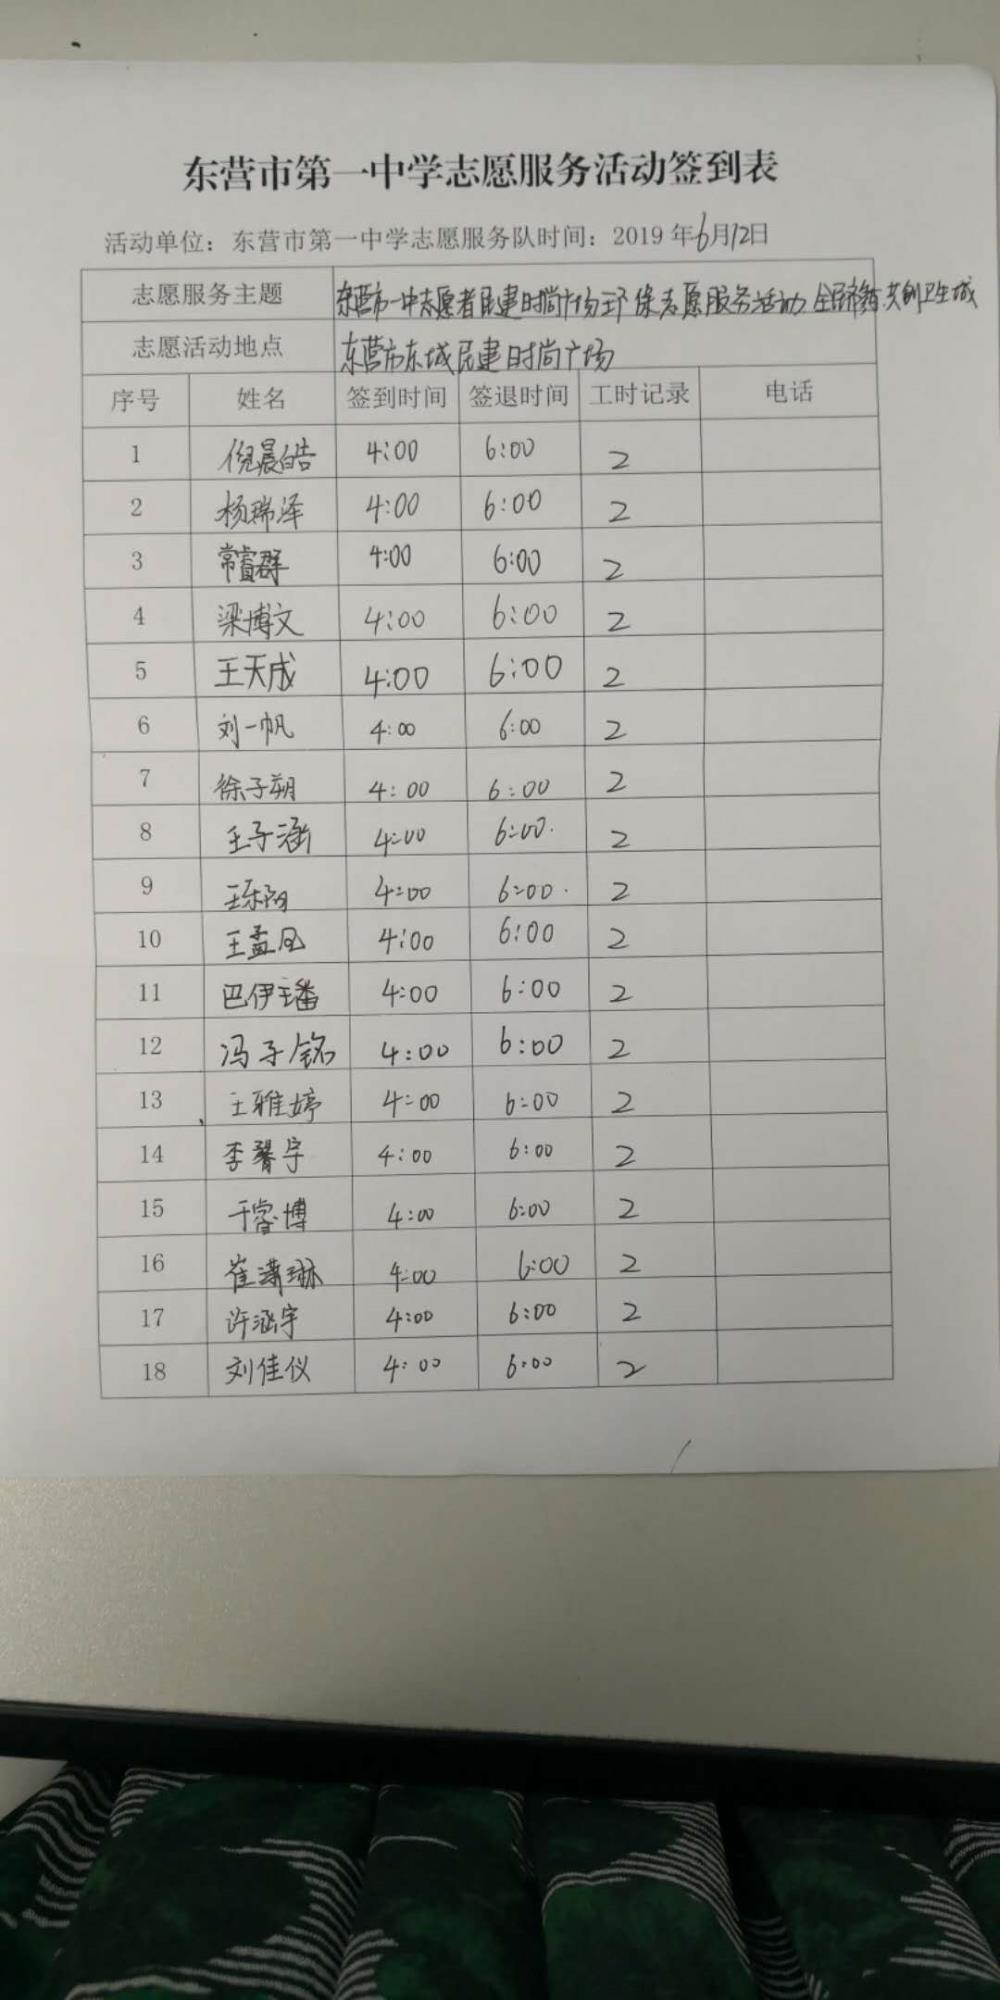 东营市第一中学志愿服务活动签到表
活动单位：东营市第一中学志愿服务队时间：2019年6月12日
志愿服务主题 东营市一中志愿者民建时尚广场环保志愿服务活动 共创卫生城
志愿活动地点 东营市东城民建时尚广场
序号 姓名 签到时间 签退时间 工时记录 电话
1 倪晨皓 4:00 6:00 2
2 杨瑞泽 4:00 6:00 2
3 常睿群 4:00 6:00 2
4 梁博文 4:00 6:00 2
5 王天成 4:00 6:00 2
6 刘一帆 4:00 6:00 2
7 徐子朔 4:00 6:00 2
8 王子涵 4:00 6:00 2
9 王乐阳 4:00 6:00 2
10 王孟凡 4:00 6:00 2
11 巴伊璠 4:00 6:00 2
12 冯子铭 4:00 6:00 2
13 王雅婷 4:00 6:00 2
14 李馨宇 4:00 6:00 2
15 于睿博 4:00 6:00 2
16 崔潇琳 4:00 6:00 2
17 许涵宇 4:00 6:00 2
18 刘佳仪 4:00 6:00 2